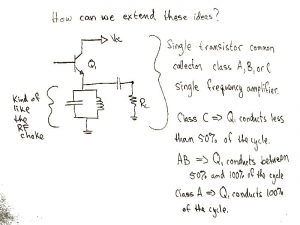 How can we extend these ideas?
Vcc
Q₁
RL
Kind of
like
the
RF
choke
Single transistor common
collector class A, B, or C
single frequency amplifier.
Class C => Q₁ conducts less
than 50% of the cycle.
AB => Q₁ conducts between
50% and 100% of the cycle
Class A => Q₁ conducts 100%
of the cycle.